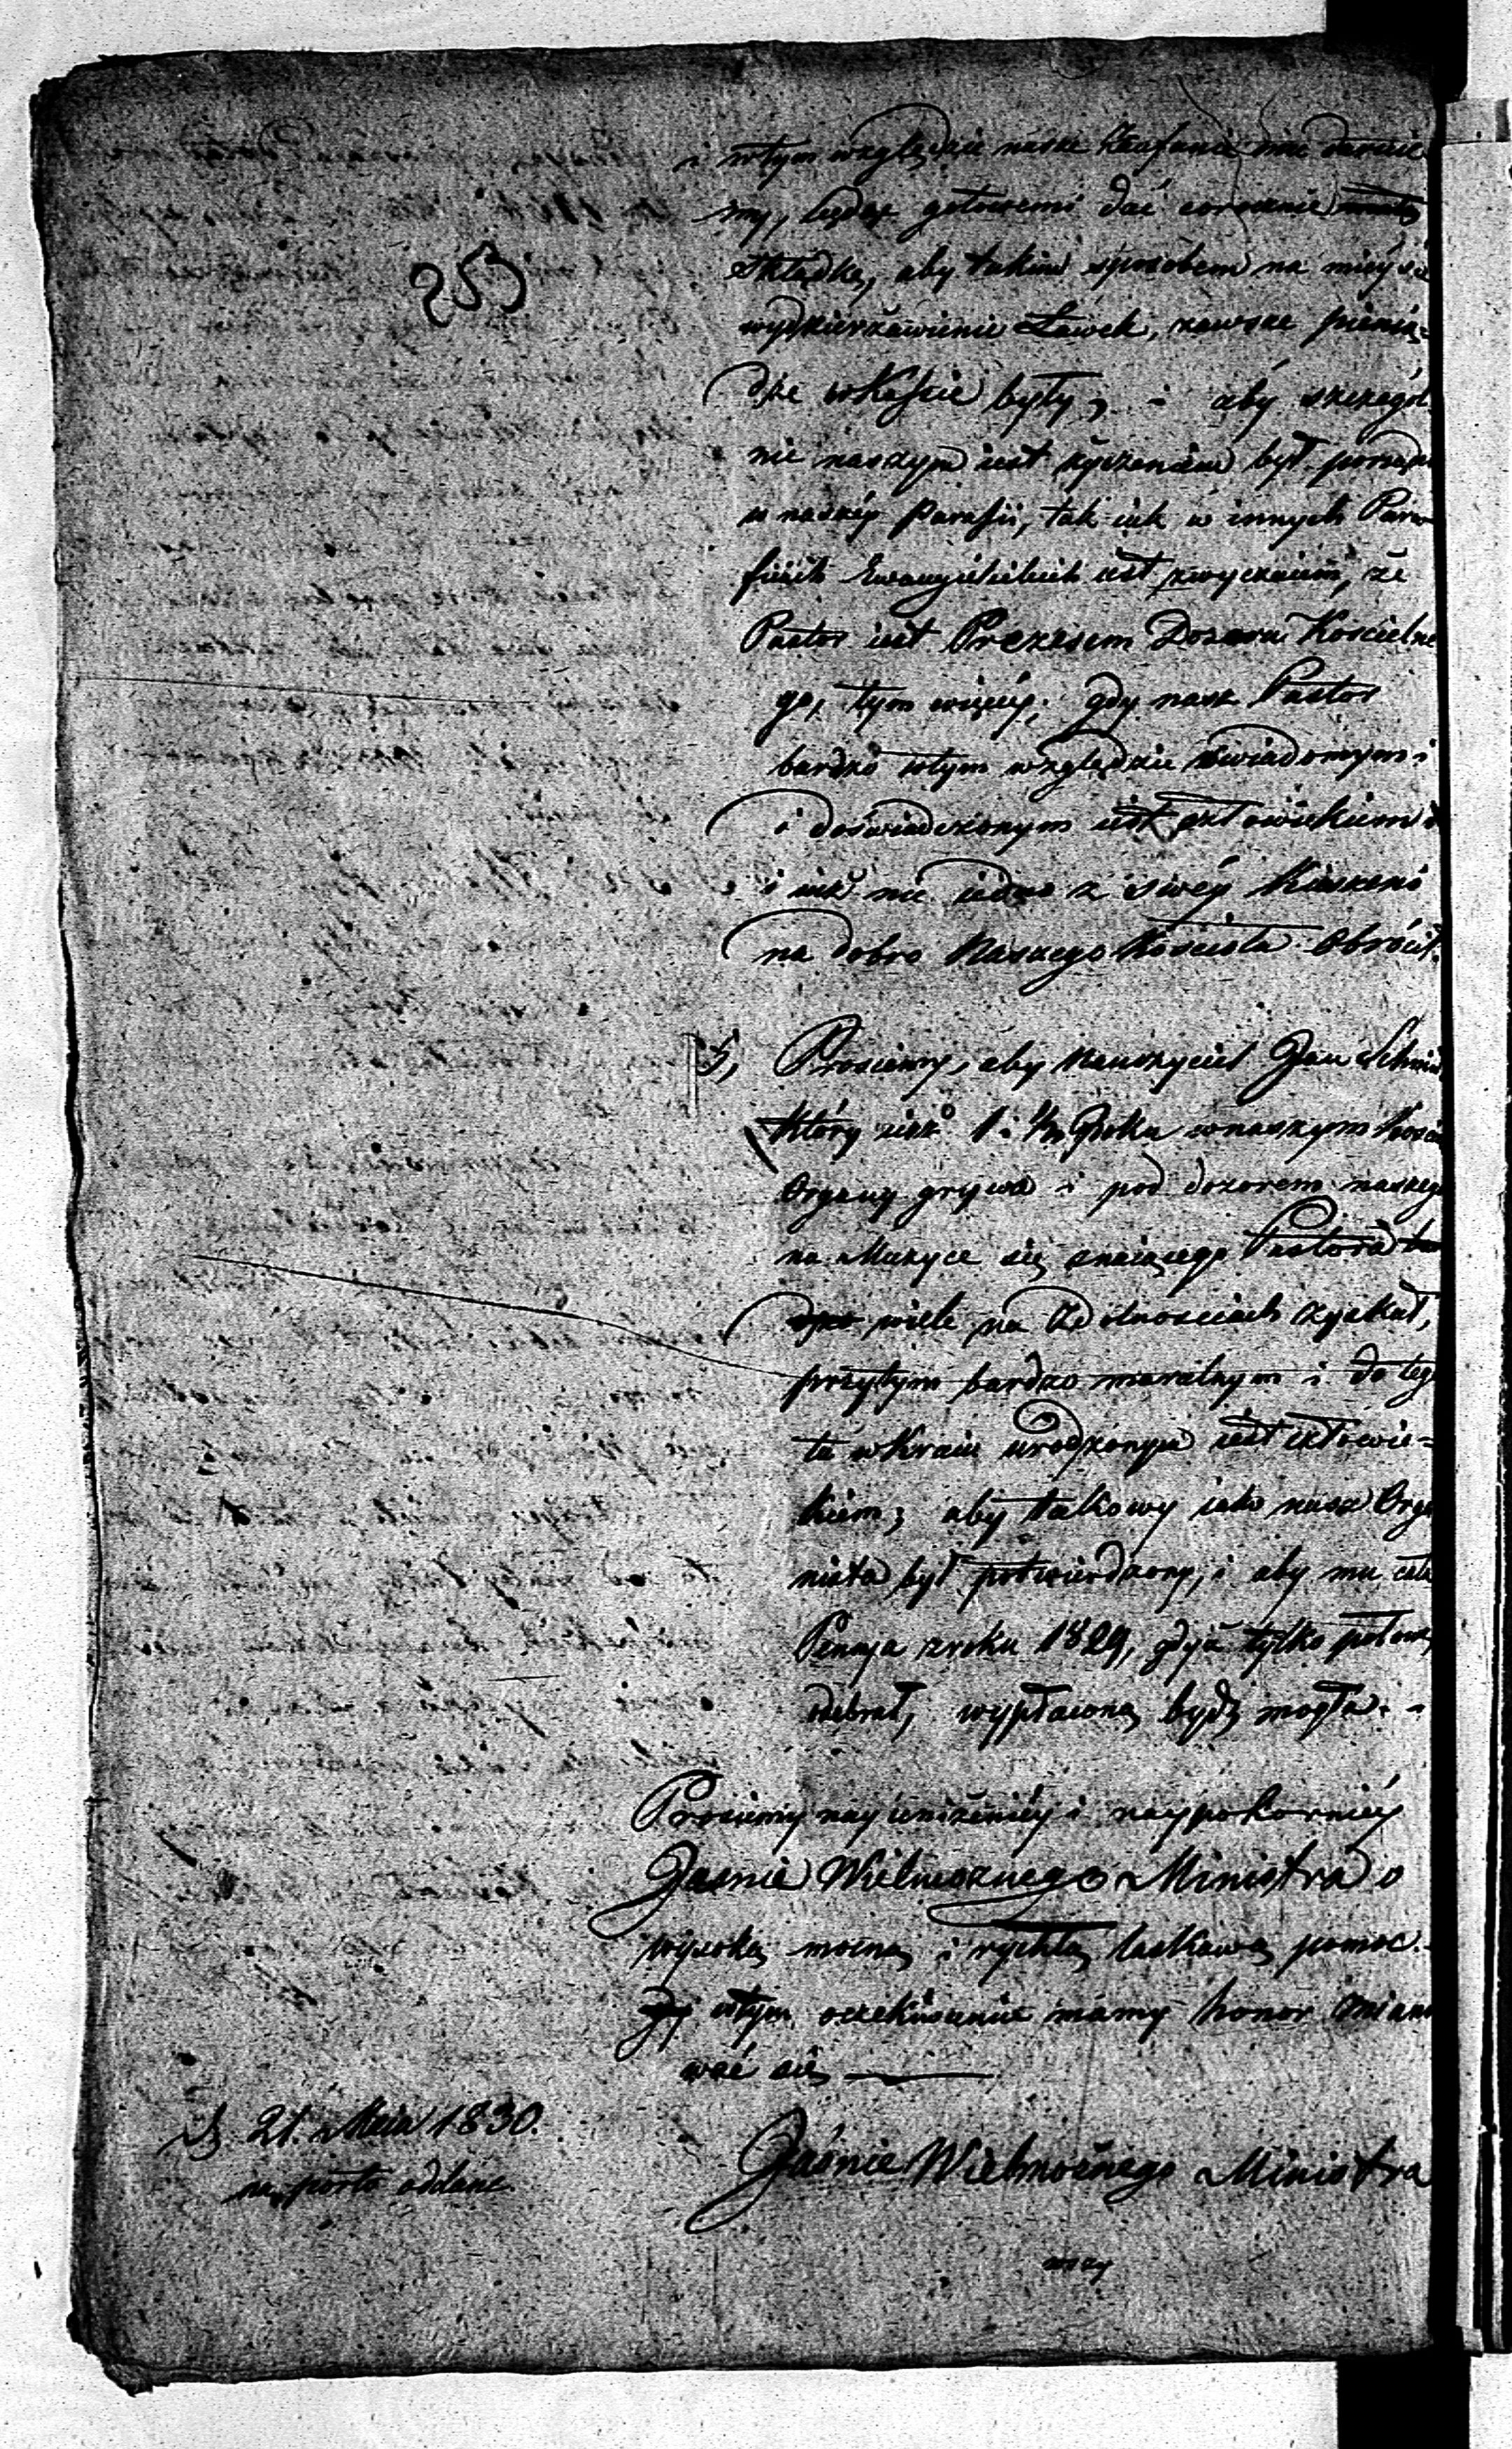 i wtym względzie nasze Zaufanie
my, będąc gotowemi dać corocznie
składkę, aby takim sposobem na mieysce
wydzierżawienie Ławek, zawsze pienią=
dze w Kassie były, i aby szczegól
nie naszym iest życzeniem był porząd
w naszéy Parafii, tak iak w innych Para
fiiach Ewangielickich iest zwyczaiem, że
Pastor iest Prezesem Dozoru Kościelne
go, tym więcéy, gdy nasz Pastor
bardzo wtym względzie świadomym i
i doświadczonym iest człowiekiem
i iuż nie iedno z swéy Kieszeni
na dobro Naszego Kościoła obrócił.
5, Prosiemy, aby Nauczyciel Jan Schmid
który iusz 1 i ½ Roku wnaszym Kości
Organy grywa i pod dozorem naszego
na Muzyce się znaiącego Pastora
wiele na Zdolnosciach zyskał,
przytym bardzo moralnym i do tego
tu w Kraiu urodzonym iest człowie=
kiem; aby takowy iako nasz Orga
nista był potwierdzony, i aby mu cała
Pensya zroku 1829, gdyż tylko połowę
odebrał, wypłaconą bydź mogła.
Prosiemy nayuniżeniéy i naypokorniéy
Jaśnie Wielmożnego Ministra o
wysoką mocną i rychłą łaskawą pomoc.
wtym oczekiwaniu mamy honor mian
wać się
Jaśnie Wielmożnego Ministra
253
21. Maia 1830.
na porto oddane.